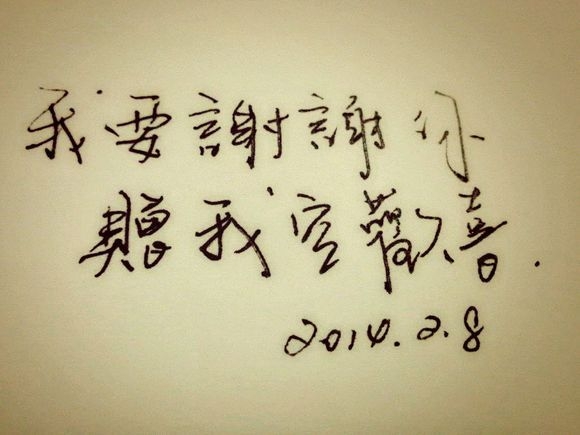 我要謝謝你
贈我空歡喜.
2014.2.8